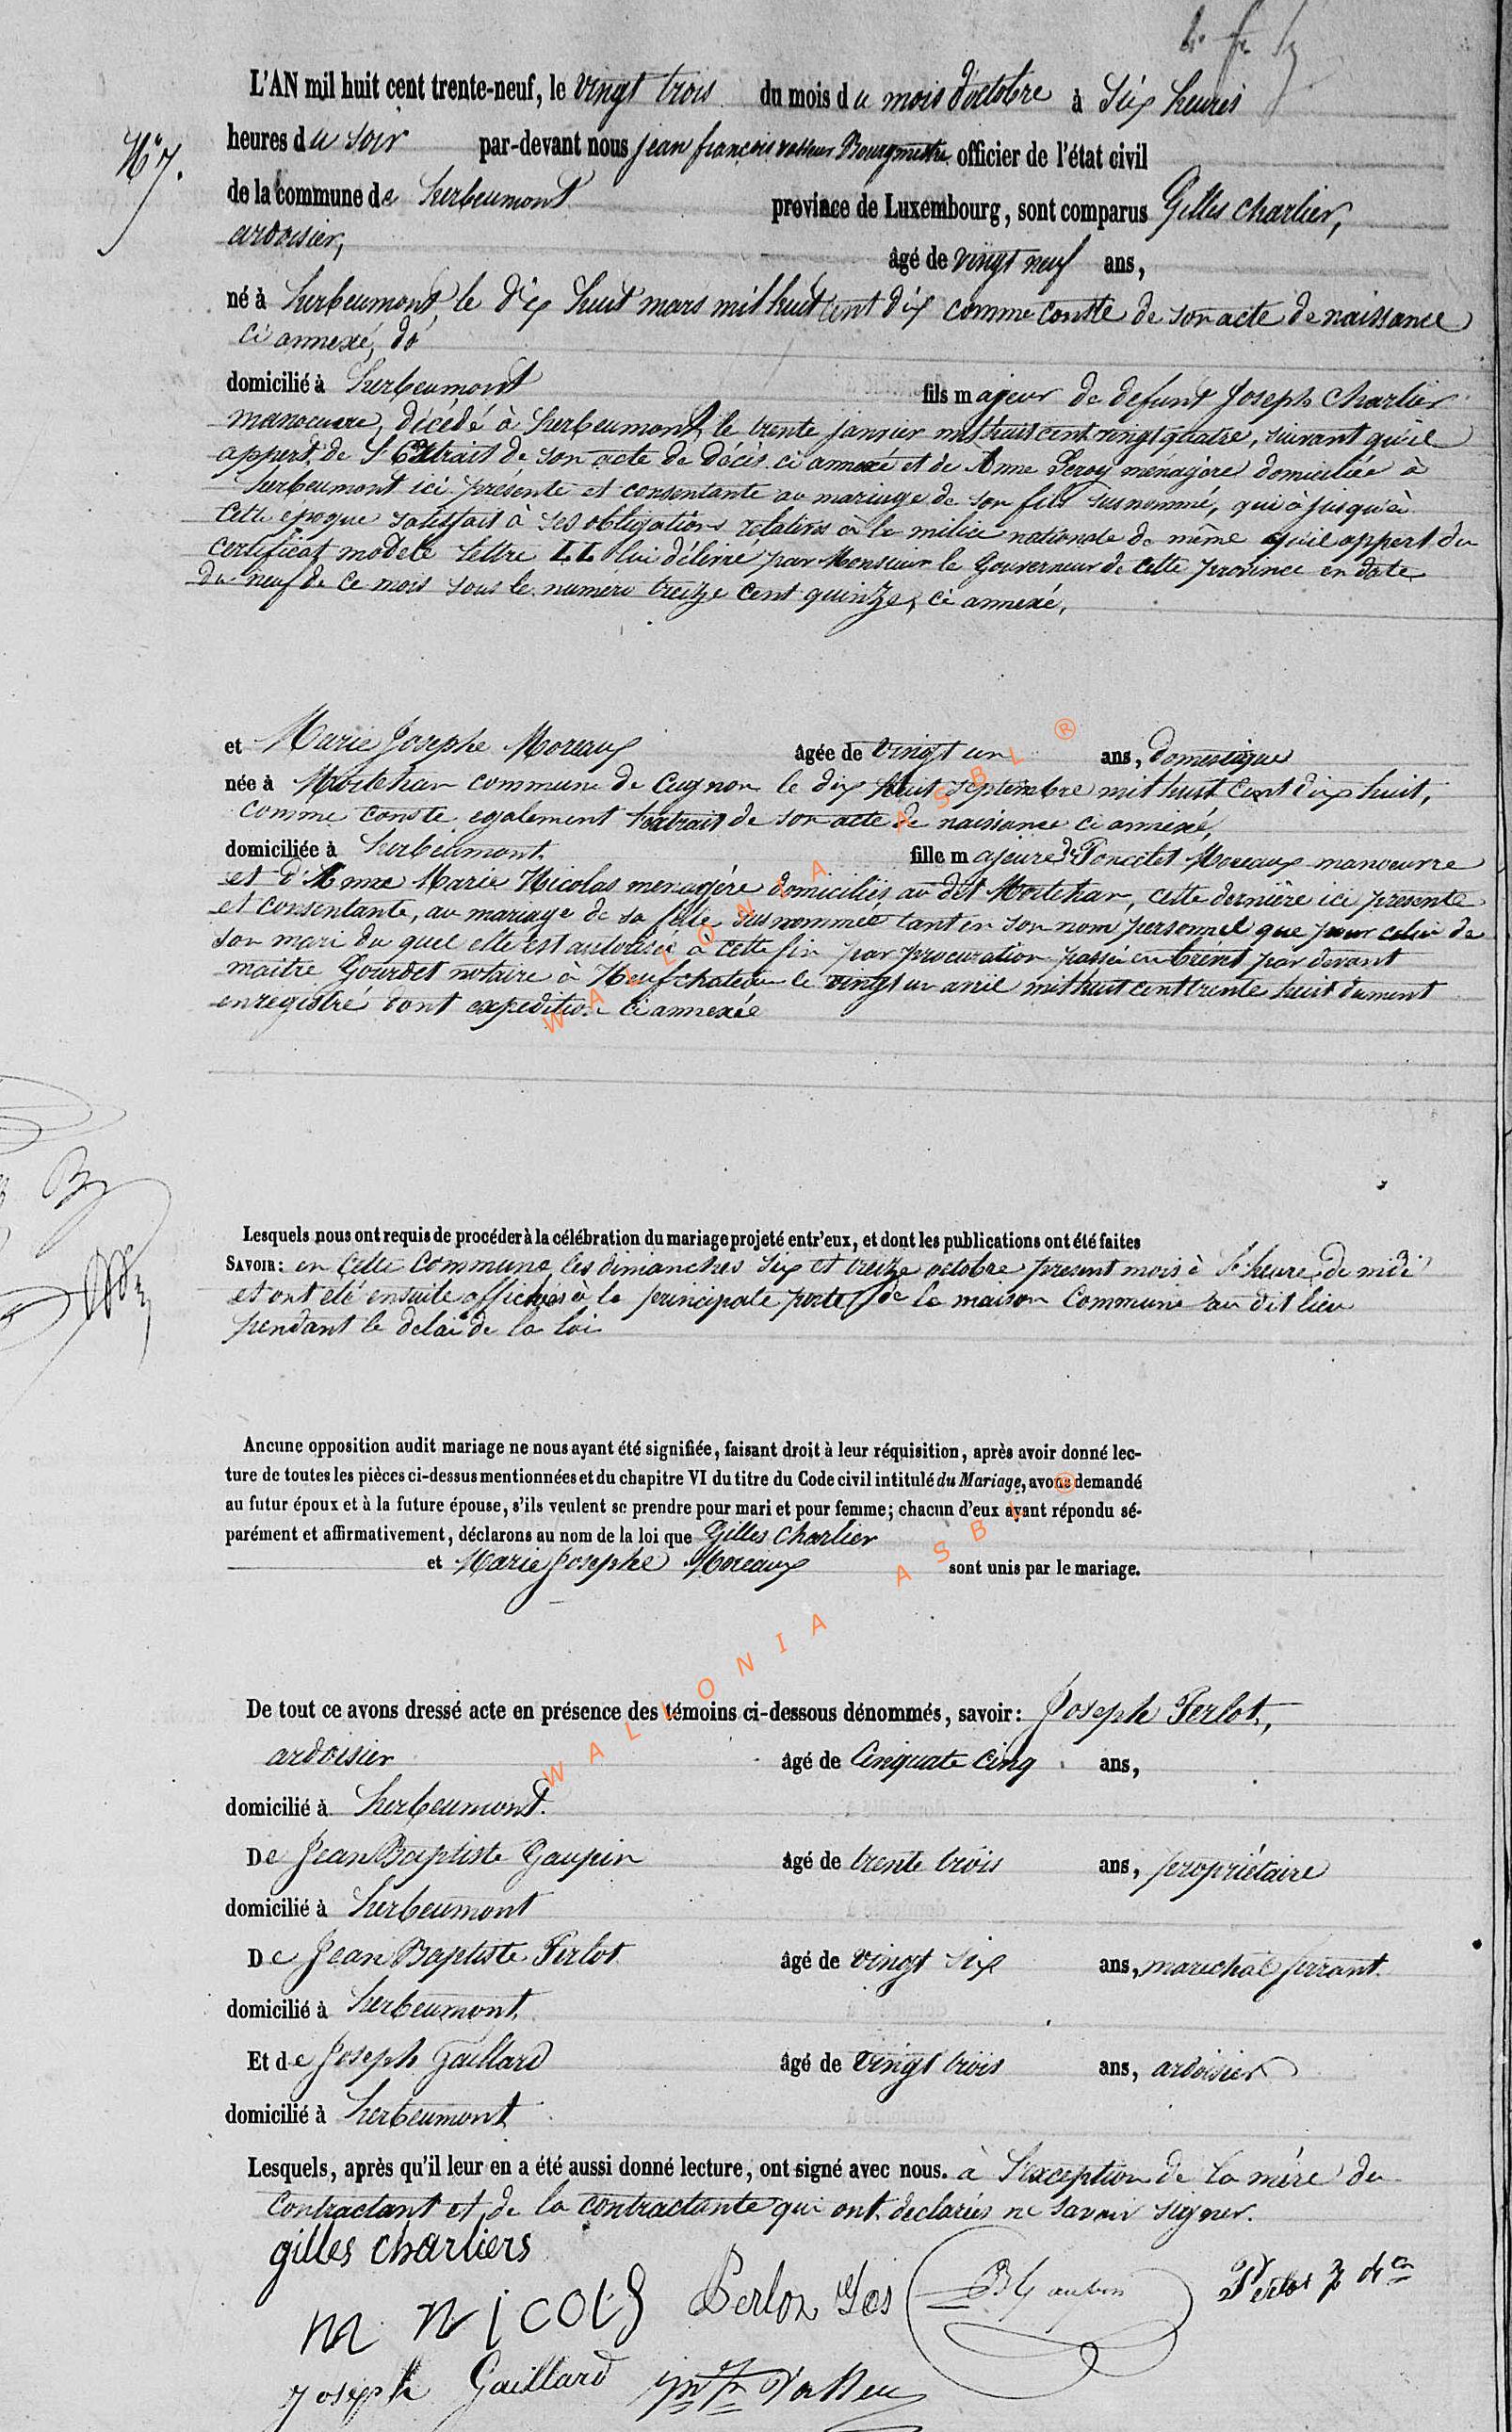 L'AN mil huit cent trente-neuf, le vingt trois du mois du mois d'octobre à Six heures
N° 7.
heures du soir par-devant nous jean françois vasseur Bourgmestre officier de l'état civil
de la commune de herbeumont province de Luxembourg, sont comparus Gilles charlier,
ardoisier, âgé de vingt neuf ans,
né à herbeumont, le dix huit mars mil huit cent dix comme conste de son acte de naissance
ci annexé,
domicilié à herbeumont fils majeur de defunt Joseph Charlier
manoeuvre, décédé à herbeumont, le trente janvier mil huit cent vingt quatre, suivant qu'il
appert de l'Extrait de son acte de décès ci annexé et de Anne Leroy ménagère domiciliée à
herbeumont ici présente et consentante au mariage de son fils susnommé, qui à jusqu'à
cette epoque satisfait à ses obligations relatives à la milice nationale de même qu'il appert du
certificat modele lettre LL lui délivré par Monsieur le Gouverneur de cette province en date
du neuf de ce mois sous le numero treize cent quinze, ci annexé,
et Marie Josephe Moreaux âgée de vingt un ans, domestique
née à Mortehan commune de Cugnon le dix huit septembre mil huit cent dix huit,
comme conste egalement l'extrait de son acte de naissance ci annexé,
domiciliée à herbeumont fille majeure de Poncelet Moreaux manoeuvre
et d'Anne Marie Nicolas menagère domiciliés au dit Mortehan, cette dernière ici presente
et consentante, au mariage de sa fille susnommée tant en son nom personnel que pour celui de
son mari du quel elle est autorisée à cette fin par procuration passée en brevet par devant
maitre Gourdet notaire à Neufchateau le vingt un avril mil huit cent trente huit dument
enregistré dont expedition ci annexée
WALLONIA ASBL ®
Lesquels nous ont requis de procéder à la célébration du mariage projeté entr'eux, et dont les publications ont été faites
SAVOIR: en cette Commune les dimanches six et treize octobre present mois à l'heure de midi
et ont été ensuite affichés à la principale porte de la maison Commune au dit lieu
pendant le delai de la loi
Ancune opposition audit mariage ne nous ayant été signifiée, faisant droit à leur réquisition, après avoir donné lec-
ture de toutes les pièces ci-dessus mentionnées et du chapitre VI du titre du Code civil intitulé du Mariage, avons demandé
au futur époux et à la future épouse, s'ils veulent se prendre pour mari et pour femme; chacun d'eux ayant répondu sé-
parément et affirmativement, déclarons au nom de la loi que Gilles Charlier
et Marie Josephe Moreaux sont unis par le mariage.
WALLONIA ASBL ®
De tout ce avons dressé acte en présence des témoins ci-dessous dénommés, savoir: Joseph Perlot,
ardoisier âgé de Cinquate Cinq ans,
domicilié à herbeumont.
De Jean Baptiste Gaupin âgé de trente trois ans, propriétaire
domicilié à herbeumont
De Jean Baptiste Perlot âgé de vingt six ans, marechal ferrant
domicilié à herbeumont.
Et de Joseph Gaillard âgé de vingt trois ans, ardoisier
domicilié à herbeumont
Lesquels, après qu'il leur en a été aussi donné lecture, ont signé avec nous. à l'exception de la mère du
contractant et de la contractante qui ont declarées ne savoir signer.
gilles charliers
m nicols Perlot Jos JB Gaupin Perlot
joseph Gaillard Vasseur